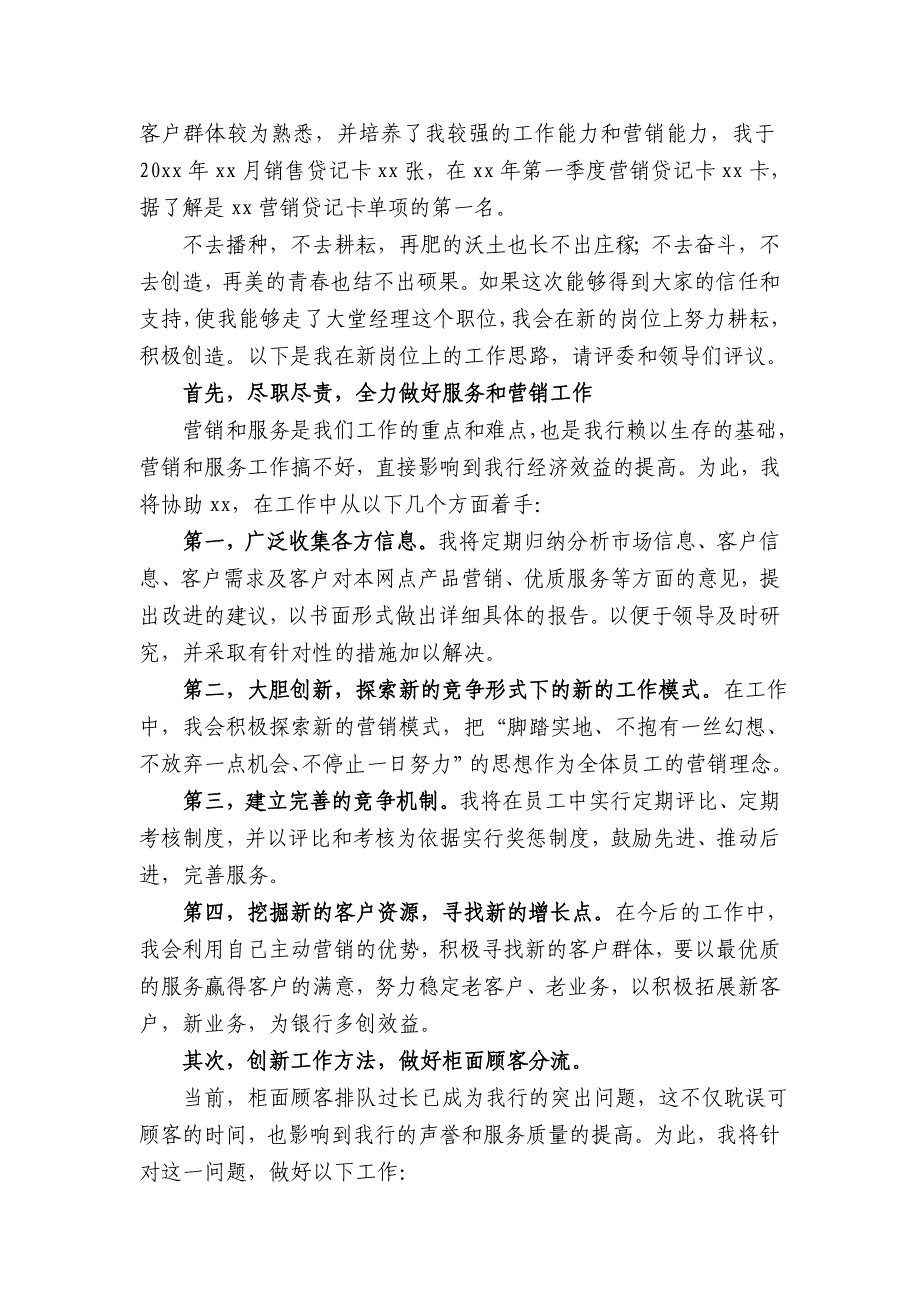 客户群体较为熟悉，并培养了我较强的工作能力和营销能力，我于
20xx 年 xx 月销售贷记卡 xx 张，在 xx 年第一季度营销贷记卡 xx 卡，
据了解是 xx 营销贷记卡单项的第一名。
不去播种，不去耕耘，再肥的沃土也长不出庄稼；不去奋斗，不
去创造，再美的青春也结不出硕果。如果这次能够得到大家的信任和
支持，使我能够走了大堂经理这个职位，我会在新的岗位上努力耕耘，
积极创造。以下是我在新岗位上的工作思路，请评委和领导们评议。
首先，尽职尽责，全力做好服务和营销工作
营销和服务是我们工作的重点和难点，也是我行赖以生存的基础，
营销和服务工作搞不好，直接影响到我行经济效益的提高。为此，我
将协助 xx，在工作中从以下几个方面着手：
第一，广泛收集各方信息。我将定期归纳分析市场信息、客户信
息、客户需求及客户对本网点产品营销、优质服务等方面的意见，提
出改进的建议，以书面形式做出详细具体的报告。以便于领导及时研
究，并采取有针对性的措施加以解决。
第二，大胆创新，探索新的竞争形式下的新的工作模式。在工作
中，我会积极探索新的营销模式，把“脚踏实地、不抱有一丝幻想、
不放弃一点机会、不停止一日努力”的思想作为全体员工的营销理念。
第三，建立完善的竞争机制。我将在员工中实行定期评比、定期
考核制度，并以评比和考核为依据实行奖惩制度，鼓励先进、推动后
进，完善服务。
第四，挖掘新的客户资源，寻找新的增长点。在今后的工作中，
我会利用自己主动营销的优势，积极寻找新的客户群体，要以最优质
的服务赢得客户的满意，努力稳定老客户、老业务，以积极拓展新客
户，新业务，为银行多创效益。
其次，创新工作方法，做好柜面顾客分流。
当前，柜面顾客排队过长已成为我行的突出问题，这不仅耽误可
顾客的时间，也影响到我行的声誉和服务质量的提高。为此，我将针
对这一问题，做好以下工作：